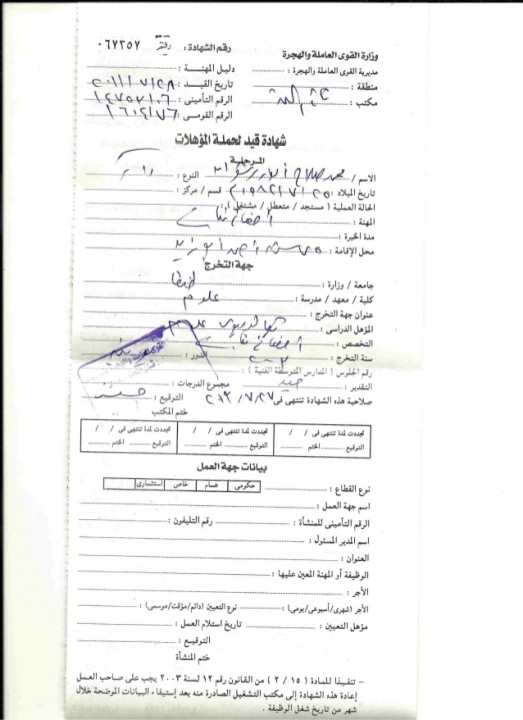 وزارة القوى العاملة والهجرة
رقم الشهادة : ٠٦٧٣٥٧
مديرية القوى العاملة والهجرة :
دليل المهنة :
منطقة :
تاريخ القيد : ٢٠١١/٧/٢٨
مكتب :
الرقم التأمينى :
الرقم القومى :
شهادة قيد لحملة المؤهلات
المرحلية
الاسم / محمد صلاح النوع : ذكر
تاريخ الميلاد : ١٩٨٢/٧/٢٥ قسم / مركز :
الحالة العملية ( مستجد / متعطل / مشتغل ) :
المهنة : أخصائى
مدة الخبرة :
محل الإقامة :
جهة التخرج
جامعة / وزارة : طنطا
كلية / معهد / مدرسة : علوم
عنوان جهة التخرج :
المؤهل الدراسى : بكالوريوس علوم
التخصص : أخصائى
سنة التخرج : ٢٠٠٣ الدور :
رقم الجلوس ( المدارس المتوسطة الفنية ) :
التقدير : جيد مجموع الدرجات :
صلاحية هذه الشهادة تنتهى فى ٢٠١٣/٧/٢٧ التوقيع :
ختم المكتب
تجددت لمدة تنتهى فى / / تجددت لمدة تنتهى فى / / تجددت لمدة تنتهى فى / /
التوقيع الختم التوقيع الختم التوقيع الختم
بيانات جهة العمل
نوع القطاع : حكومى عام خاص استثمارى
اسم جهة العمل :
الرقم التأمينى للمنشأة : رقم التليفون :
اسم المدير المسئول :
العنوان :
الوظيفة أو المهنة المعين عليها :
الأجر :
الأجر (شهرى/أسبوعى/يومى) : نوع التعيين (دائم/مؤقت/موسمى) :
مؤهل التعيين : تاريخ استلام العمل :
التوقيع :
ختم المنشأة
- تنفيذا للمادة ( ١٥ / ٢ ) من القانون رقم ١٢ لسنة ٢٠٠٣ يجب على صاحب العمل
إعادة هذه الشهادة إلى مكتب التشغيل الصادرة منه بعد إستيفاء البيانات الموضحة خلال
شهر من تاريخ شغل الوظيفة .